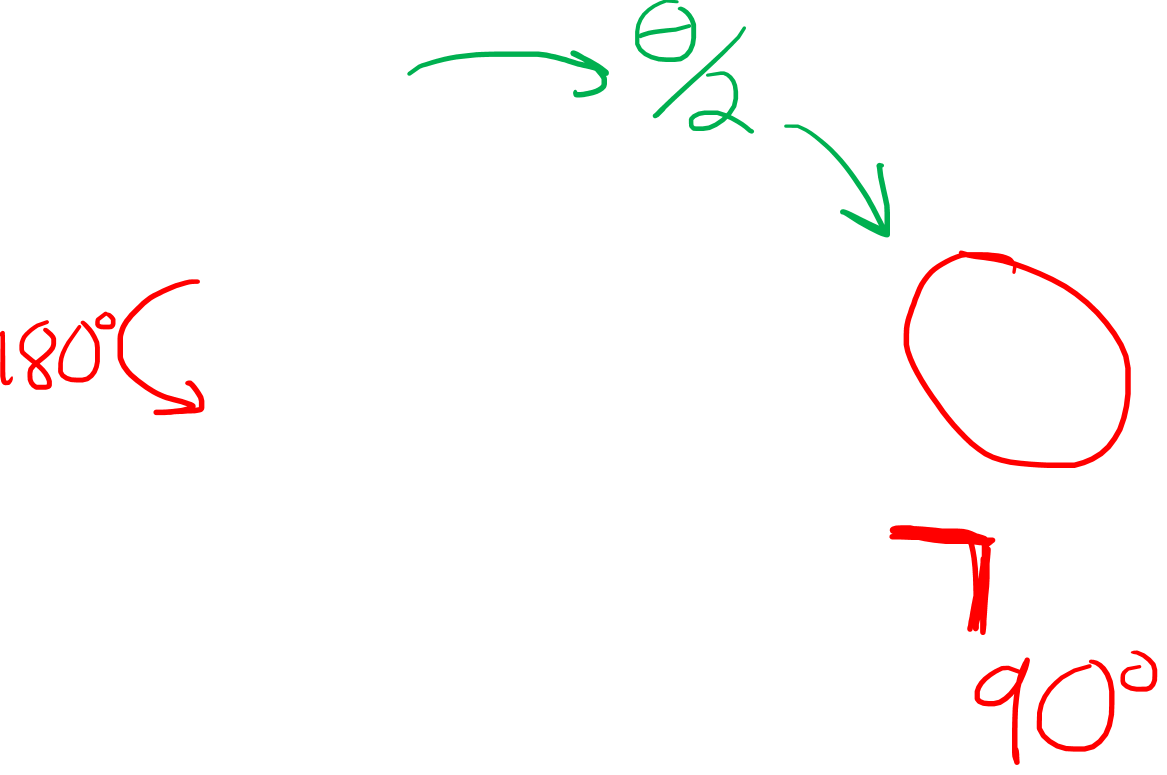 θ/2
180°
90°